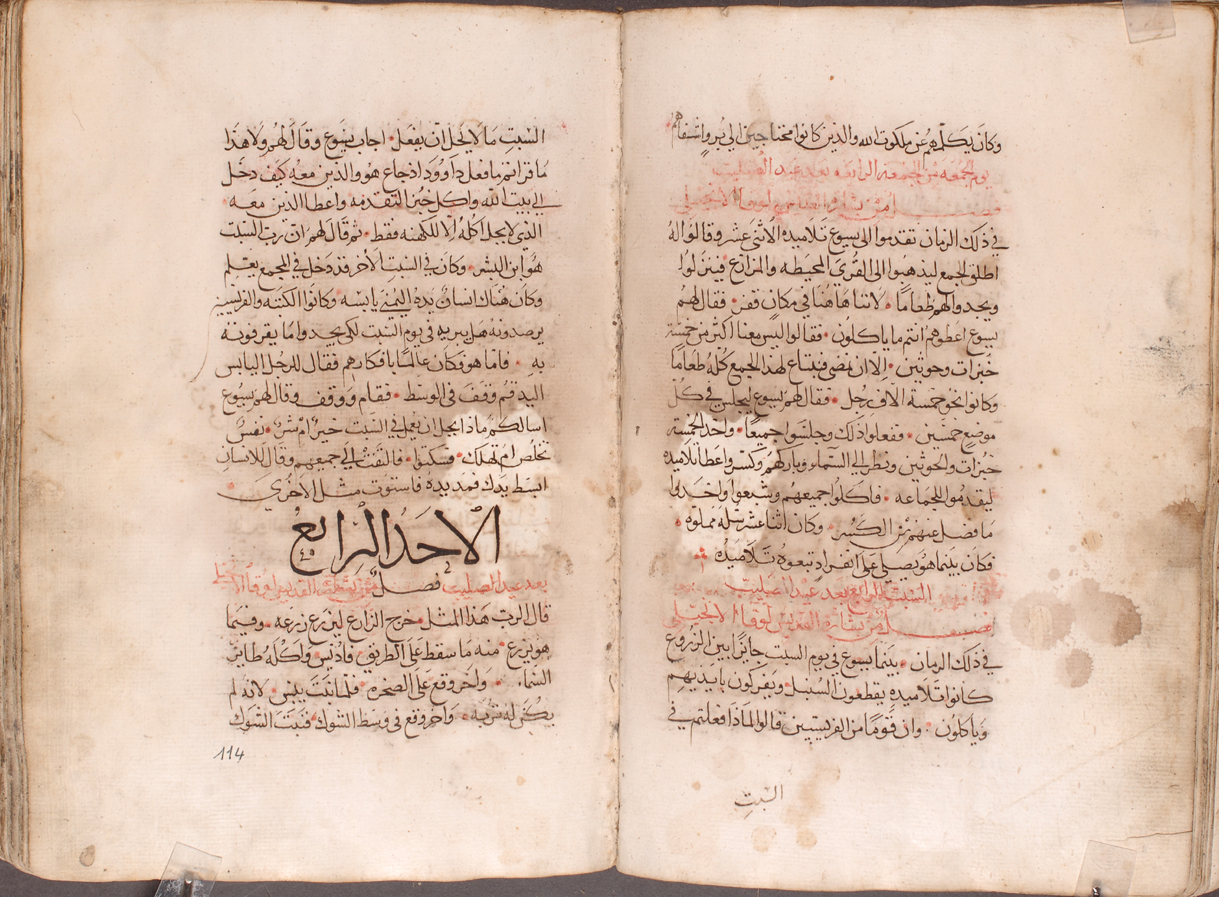 وكان يكلمهم عن ملكوت الله والذين كانوا محتاجين الي برو اشفاهم
يوم الجمعه من الجمعه الرابعه بعد عيد الصليب
من بشارة القديس لوقا الانجيلي
في ذلك الزمان تقدموا الى يسوع تلاميده الاثنى عشر وقالوا له
اطلق الجمع ليذهبوا الى القرى المحيطه والمزارع فينزلوا
ويجدوا لهم طعاما • لاننا هاهنا في مكان قفر • فقال لهم
يسوع اعطوهم انتم ما ياكلون • فقالوا ليس معنا اكثر من خمسة
خبزات وحوتين • الا ان نمضي فنبتاع لهذا الجمع كله طعاما
وكانوا نحو خمسة الاف رجل • فقال لهم يسوع ليجلس في كل
موضع خمسين • ففعلوا ذلك وجلسوا جميعا • واخذ الخمسة
خبزات والحوتين ونظر الى السماء وباركهم وكسر واعطا تلاميده
ليقدموا للجماعه • فاكلوا جميعهم وشبعوا واخدوا
ما فضل عنهم من الكسر • وكان اثنا عشر سله مملوه •
فكان بينما هو يصلي على انفراد تبعوه تلاميده
السبت الرابع بعد عيد الصليب
فصل من بشارة القديس لوقا الانجيلي
في ذلك الزمان • بينما يسوع في يوم السبت جايزا بين الزروع
كانوا تلاميده يقطعون السنبل ويفركون بايديهم
وياكلون • وان قوما من الفريسيين قالوا لماذا فعلتم في
السبت
السبت ما لا يحل ان يفعل • اجاب يسوع وقال لهم ولا هذا
ما قراتم ما فعل داوود اذ جاع هو والذين معه كيف دخل
الى بيت الله واكل خبز التقدمه واعطا الذين معه •
الذي لا يحل اكله الا للكهنه فقط • ثم قال لهم ان رب السبت
هو ابن البشر • وكان في السبت الاخر قد دخل في المجمع يعلم
وكان هناك انسان يده اليمنى يابسه • وكانوا الكتبه والفريسيين
يرصدونه هل يبريه في يوم السبت لكي يجدوا ما يقرفونه
به • فاما هو فكان عالما بافكارهم فقال للرجل اليابس
اليد قم وقف في الوسط • فقام ووقف وقال لهم يسوع
اسالكم ماذا يحل ان يعمل في السبت خير ام شر • نفس
تخلص ام تهلك • فسكتوا • فالتفت الي جميعهم وقال للانسان
ابسط يدك فمد يده فاستوت مثل الاخرى
الاحد الرابع
بعد عيد الصليب فصل من بشارة القديس لوقا
قال الرب هذا المثل • خرج الزارع ليزرع زرعه • وفيما
هو يزرع • منه ما سقط على الطريق • فاديس واكله طاير
السما • واخر وقع على الصخره • فلما نبت يبس • لانه لم
يكن له تربه • واخر وقع في وسط الشوك • فنبت الشوك
114